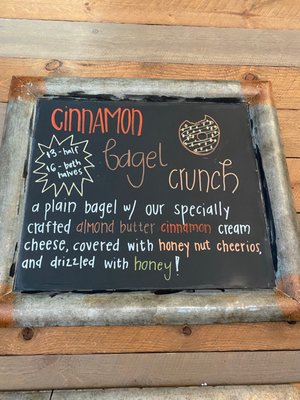 cinnamon
$3-half
$6-both
halves
bagel
crunch
a plain bagel w/ our specially
crafted almond butter cinnamon cream
cheese, covered with honey nut cheerios,
and drizzled with honey!